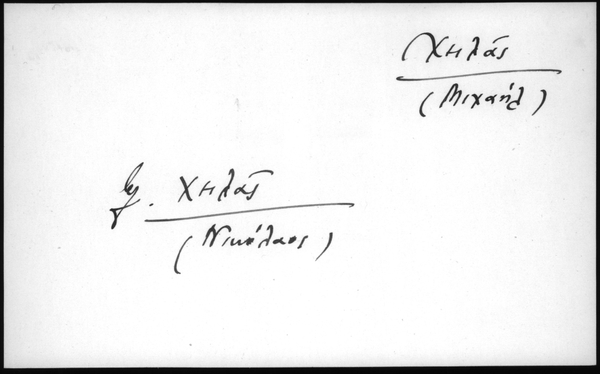 Χηλάς
(Μιχαήλ)
Χηλάς
(Νικόλαος)